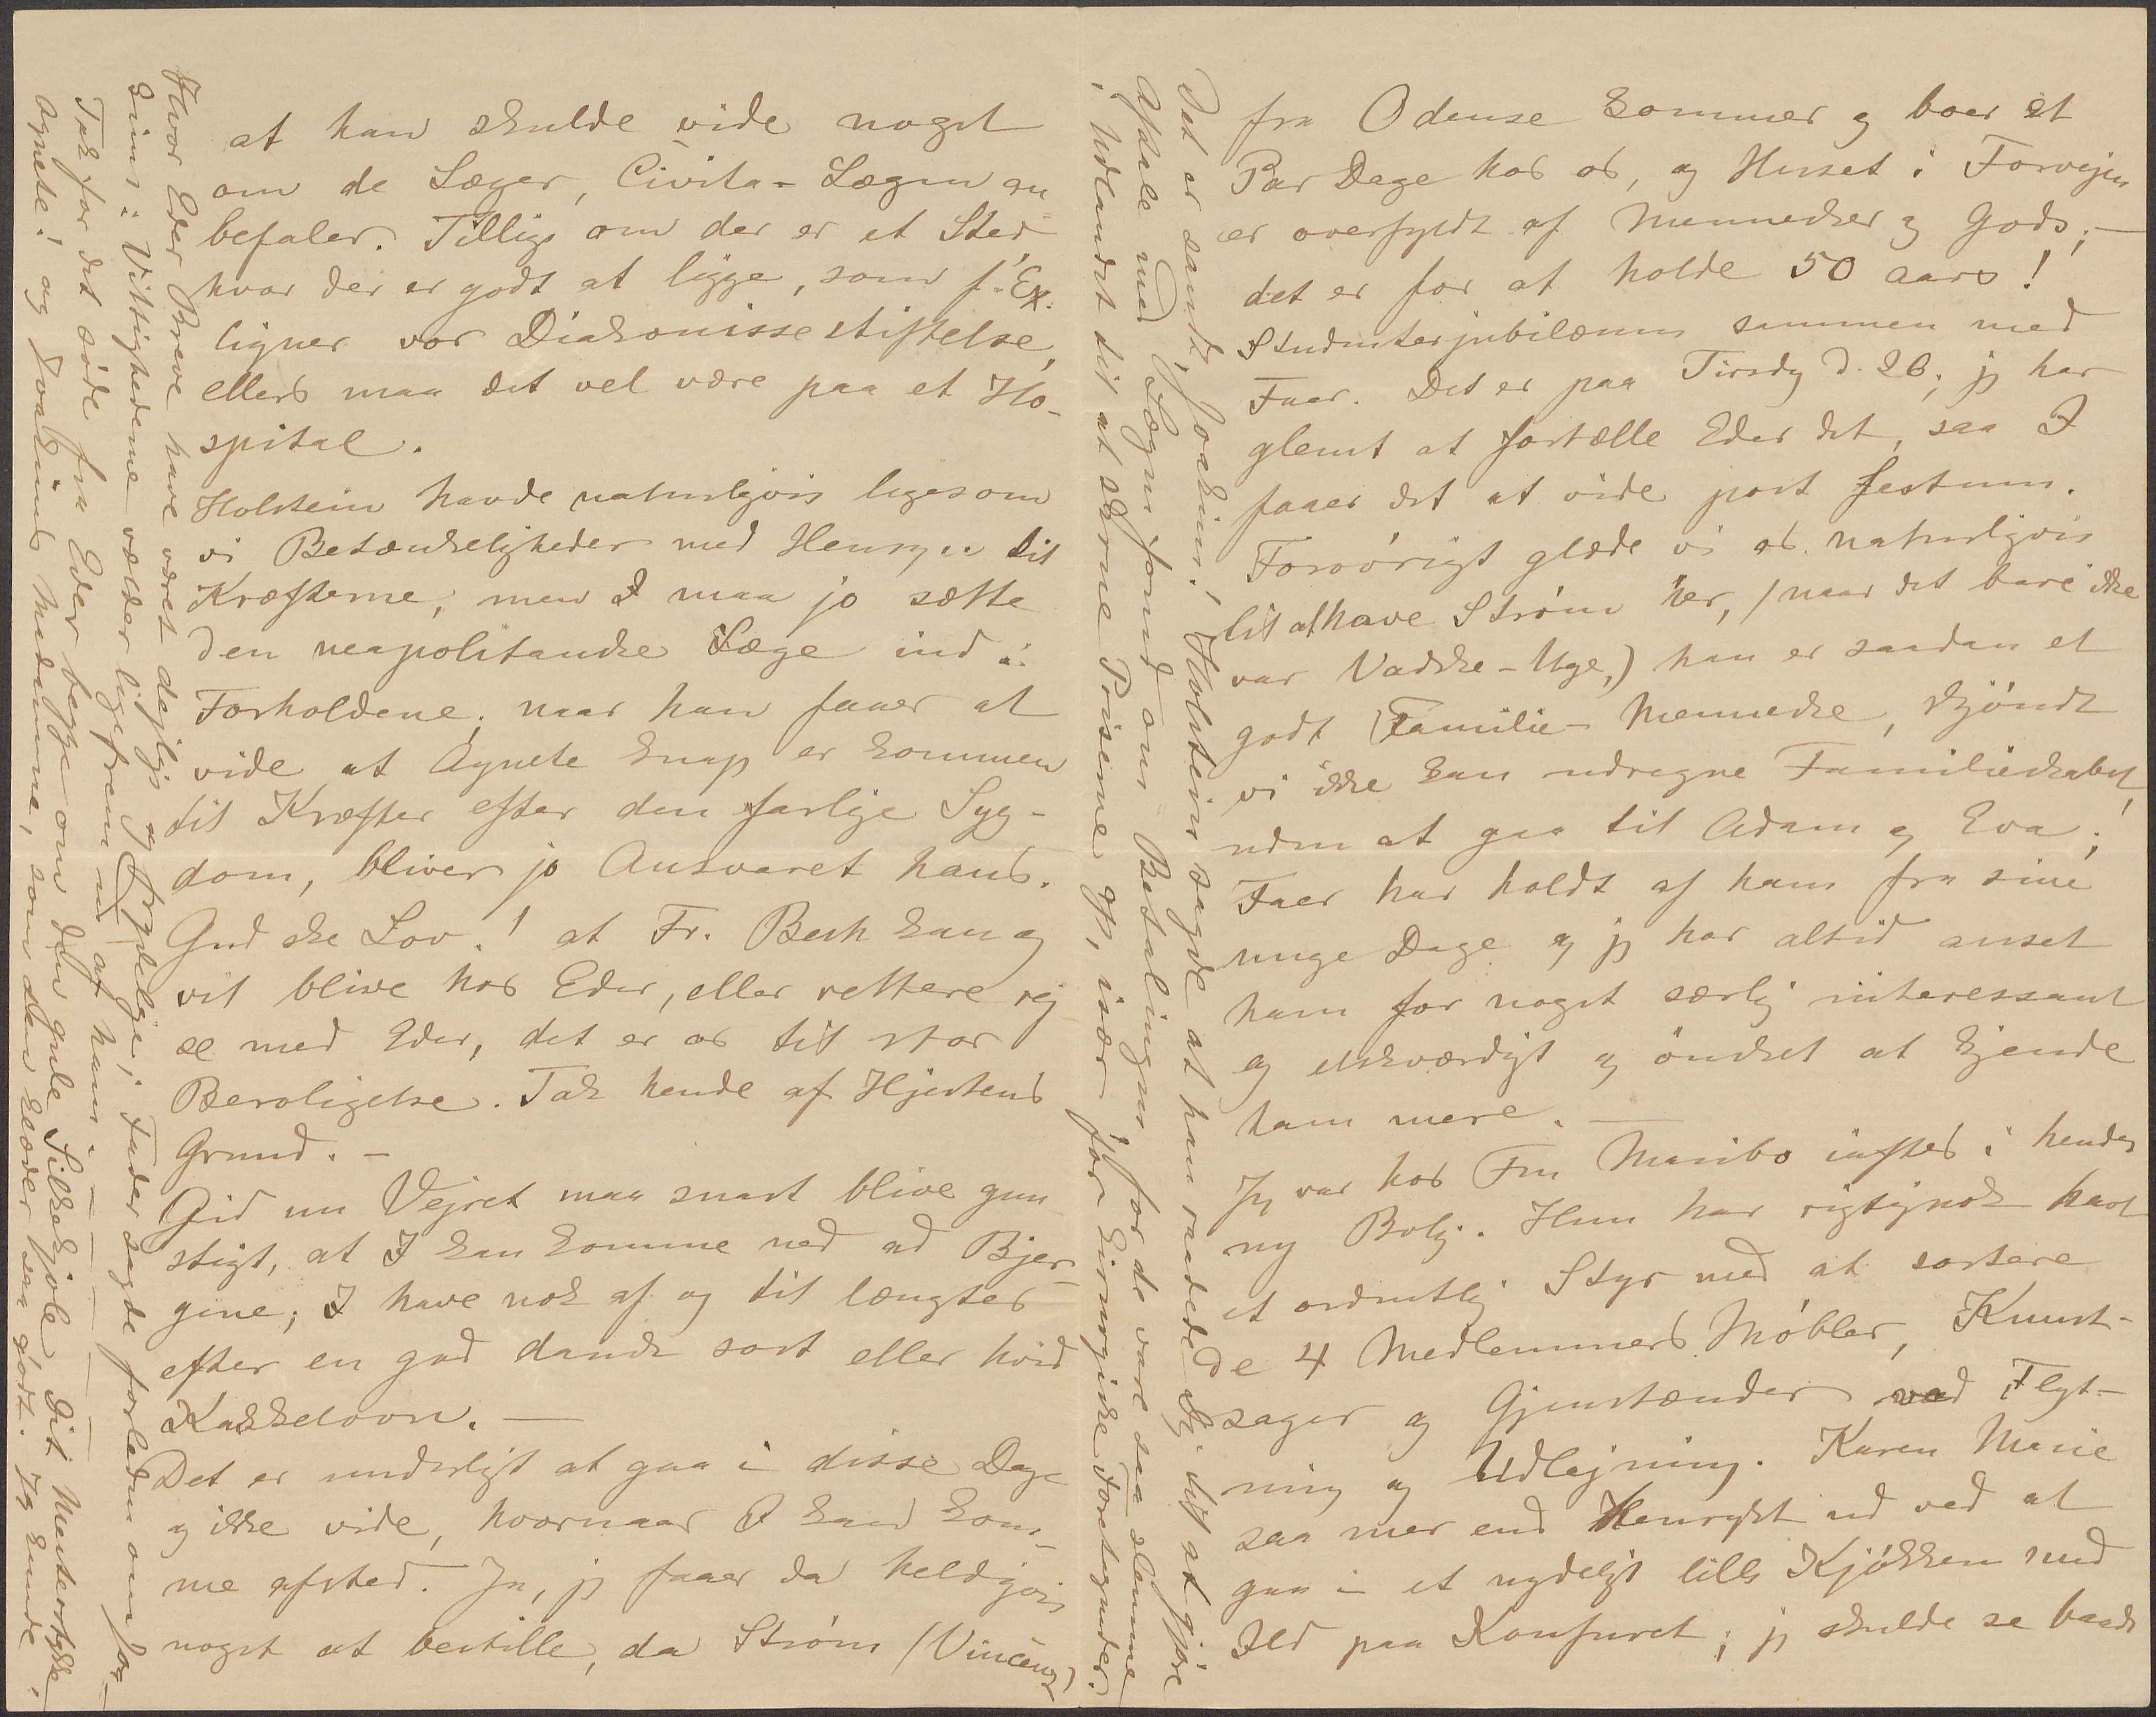 at han skulde vide noget
om de Læger, Civita-Lægen an
befaler. Tillige om der er et Sted
hvor der er godt at ligge, som f. Ex.
ligner vor Diakonissestiftelse,
ellers maa det vel være paa et Ho-
spital.
Holstein havde naturligvis ligesom
vi Betænkeligheder med Hensyn til
Kræfterne, men I maa jo sætte
den neapolitanske Læge ind i
Forholdene; naar han faaer at
vide at Agnete knap er kommen
til Kræfter efter den farlige Syg-
dom, bliver jo Ansvaret hans.
Gud ske Lov! at Fr. Besh kan og
vil blive hos Eder, eller rettere rej
se med Eder, det er os til stor
Beroligelse. Tak hende af Hjertens
Grund. -
Gid nu Vejret maa snart blive gun
stigt, at I kan komme ned ad Bjer-
gene; I have nok af og til længtes
efter en god dansk sort eller hvid
Kakkelovn. —
Det er underligt at gaa i disse Dage
og ikke vide, hvornaar I kan kom-
me afsted. Ja, jeg faaer da heldigvis
noget at bestille, da Strøm (Vincens)
Hvor Eders Breve have været dejlige og frydelige; Fader sagde forleden om Jo-
kim: Vittighederne vælder ligefrem ud af ham! — — — —
Tak for det søde fra Eder begge om den gule Silkekjole, Dit Mesterstykke,
Agnete! og Joakims Madamme, som den klæder saa godt. Jeg kunde
fra Odense kommer og boer et
Par Dage hos os, og Huset i Forvejen
er overfyldt af Mennesker og Gods; —
det er for at holde 50 Aars!
Studenterjubilæum sammen med
Faer. Det er paa Tirsdag d. 26; jeg har
glemt at fortælle Eder det, saa I
faaer det at vide post festum.
Forøvrigt glæde vi os naturligvis
til at have Strøm her, (naar det bare ikke
var Vadske-Uge,) han er saadan et
godt Familie-Menneske, skjøndt
vi ikke kan udregne Familieskabet
uden at gaa til Adam og Eva!
Faer har holdt af ham fra sine
unge Dage og jeg har altid anset
ham for noget særlig interessant
og elskværdigt og ønsket at kjende
ham mere. —
Jeg var hos Fru Maribo iaftes i hendes
ny Bolig. Hun har rigtignok havt
et ordentlig Styr med at sortere
de 4 Medlemmers Møbler, Kunst-
sager og Gjenstænder ved Flyt-
ning og Udlejning. Karen Marie
saa mer end Henrykt ud ved at
gaa i et nydeligt lille Kjøkken med
Ild paa Komfuret; jeg skulde se baade
Det er sandt, Joakim! Holstein sagde at han raadede Dig til at gjøre
Aftale med Lægen forud om Betalingen, for de vare saa slemme
i Udlandet til at skrue Priserne op, især for kirurgiske Foretagender.